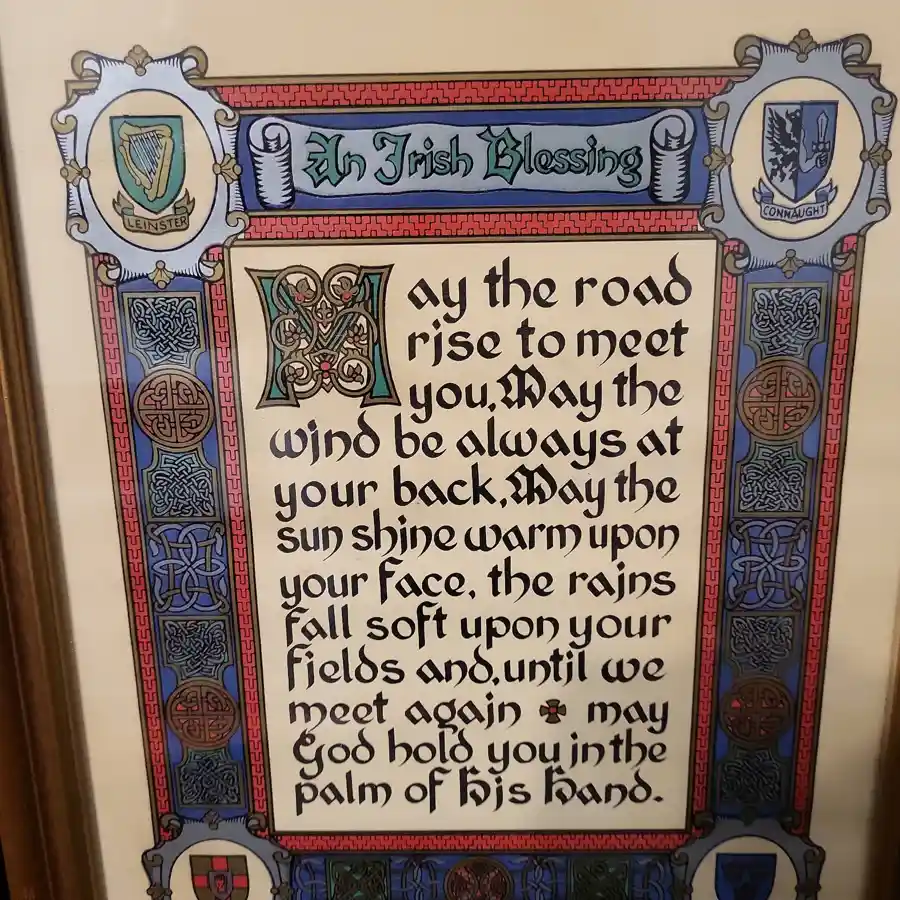 An Irish Blessing
LEINSTER
CONNAUGHT
May the road
rise to meet
you, May the
wind be always at
your back, May the
sun shine warm upon
your face, the rains
fall soft upon your
fields and, until we
meet again may
God hold you in the
palm of His Hand.